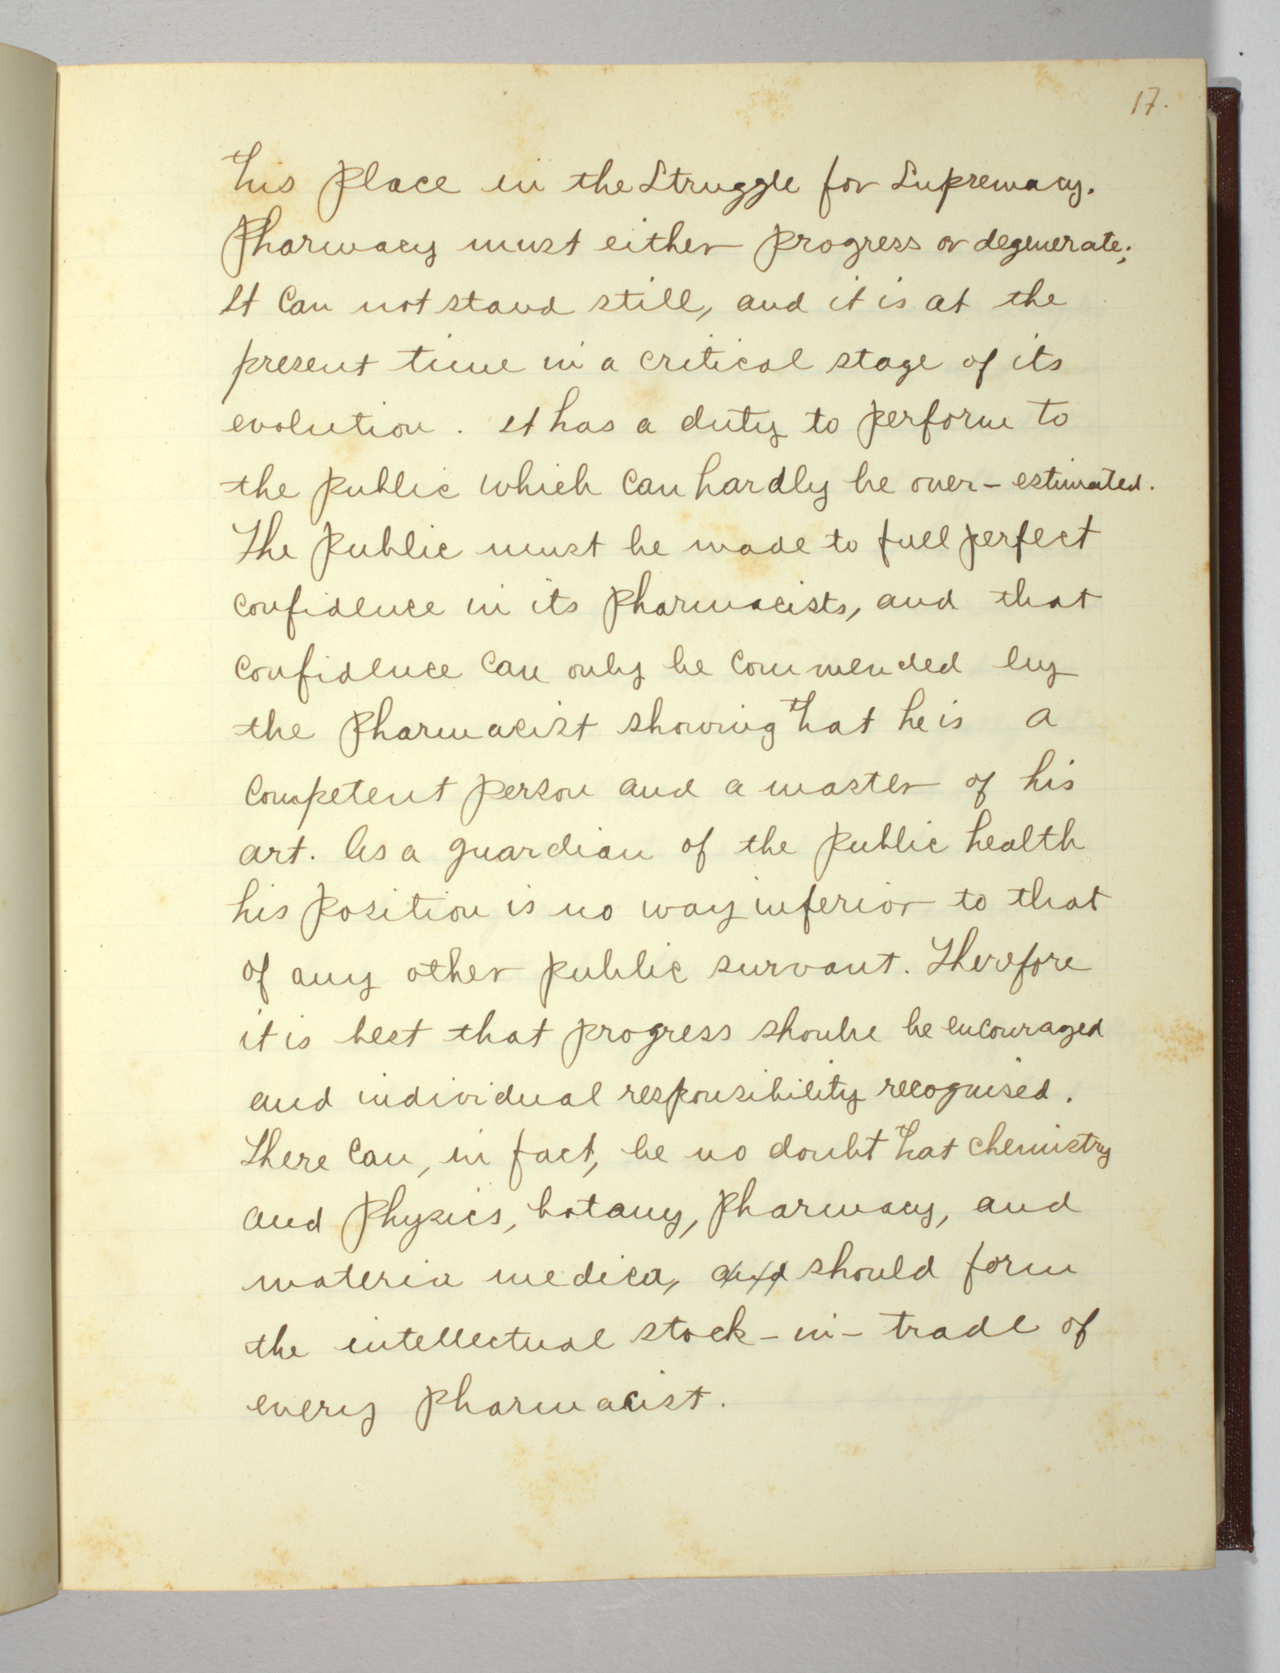 17.
his place in the Struggle for Supremacy.
Pharmacy must either progress or degenerate;
it can not stand still, and it is at the
present time in a critical stage of its
evolution. it has a duty to perform to
the public which can hardly be over-estimated.
The public must be made to full perfect
confidence in its pharmacists, and that
confidence can only be commended by
the pharmacist showing that he is a
competent person and a master of his
art. As a guardian of the public health
his position is no way inferior to that
of any other public survant. Therefore
it is best that progress should be encouraged
and individual responsibility recognised.
There can, in fact, be no doubt that chemistry
and physics, botany, pharmacy, and
materia medica, and should form
the intellectual stock-in-trade of
every pharmacist.